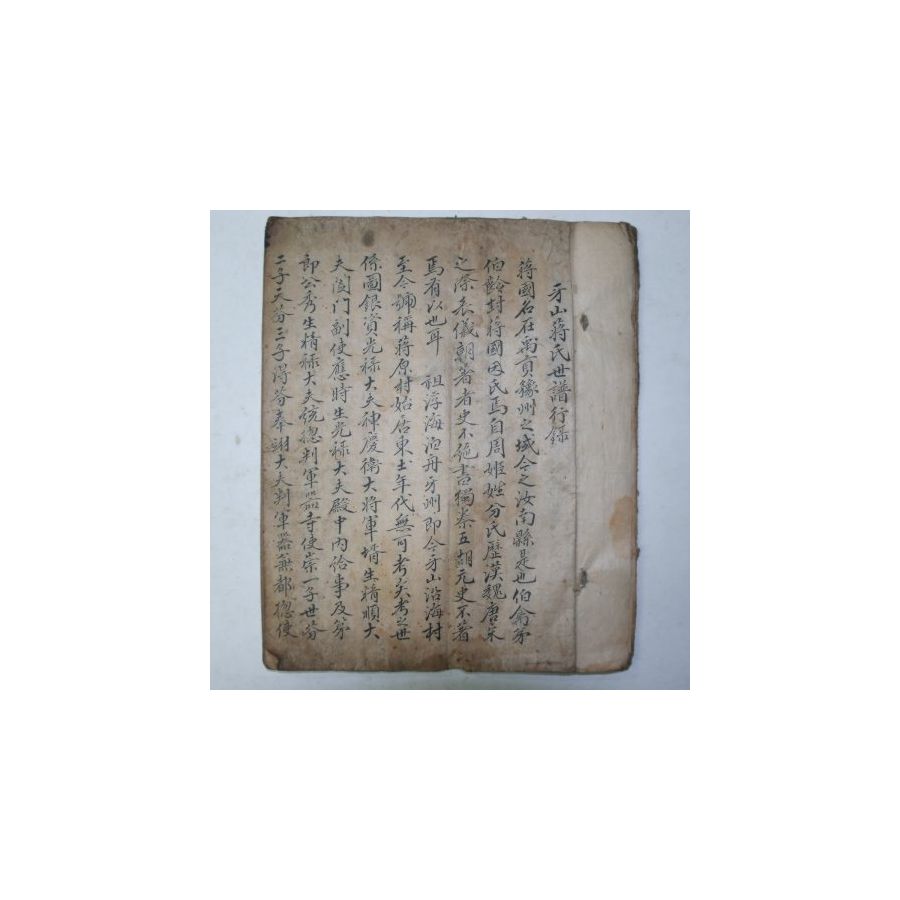 牙山蔣氏世譜行錄
蔣國名在禹貢豫州之域今之汝南縣是也伯禽茅
伯齡封蔣國因氏焉自周姬姓分氏歷漢魏唐宋
之際表儀朝著者史不絶書獨秦五胡元史不著
焉有以也耳　祖浮海泊舟牙州即今牙山沿海村
至今號稱蔣原村始居東土年代無可考矣考之世
係圖銀資光祿大夫神慶衛大將軍壻生精順大
夫閤门副使應時生光祿大夫殿中內給事及第
郎公秀生精祿大夫統摠判軍器寺使崇一子世芬
二子天芬三子得芬奉翊大夫判軍器兼都摠使